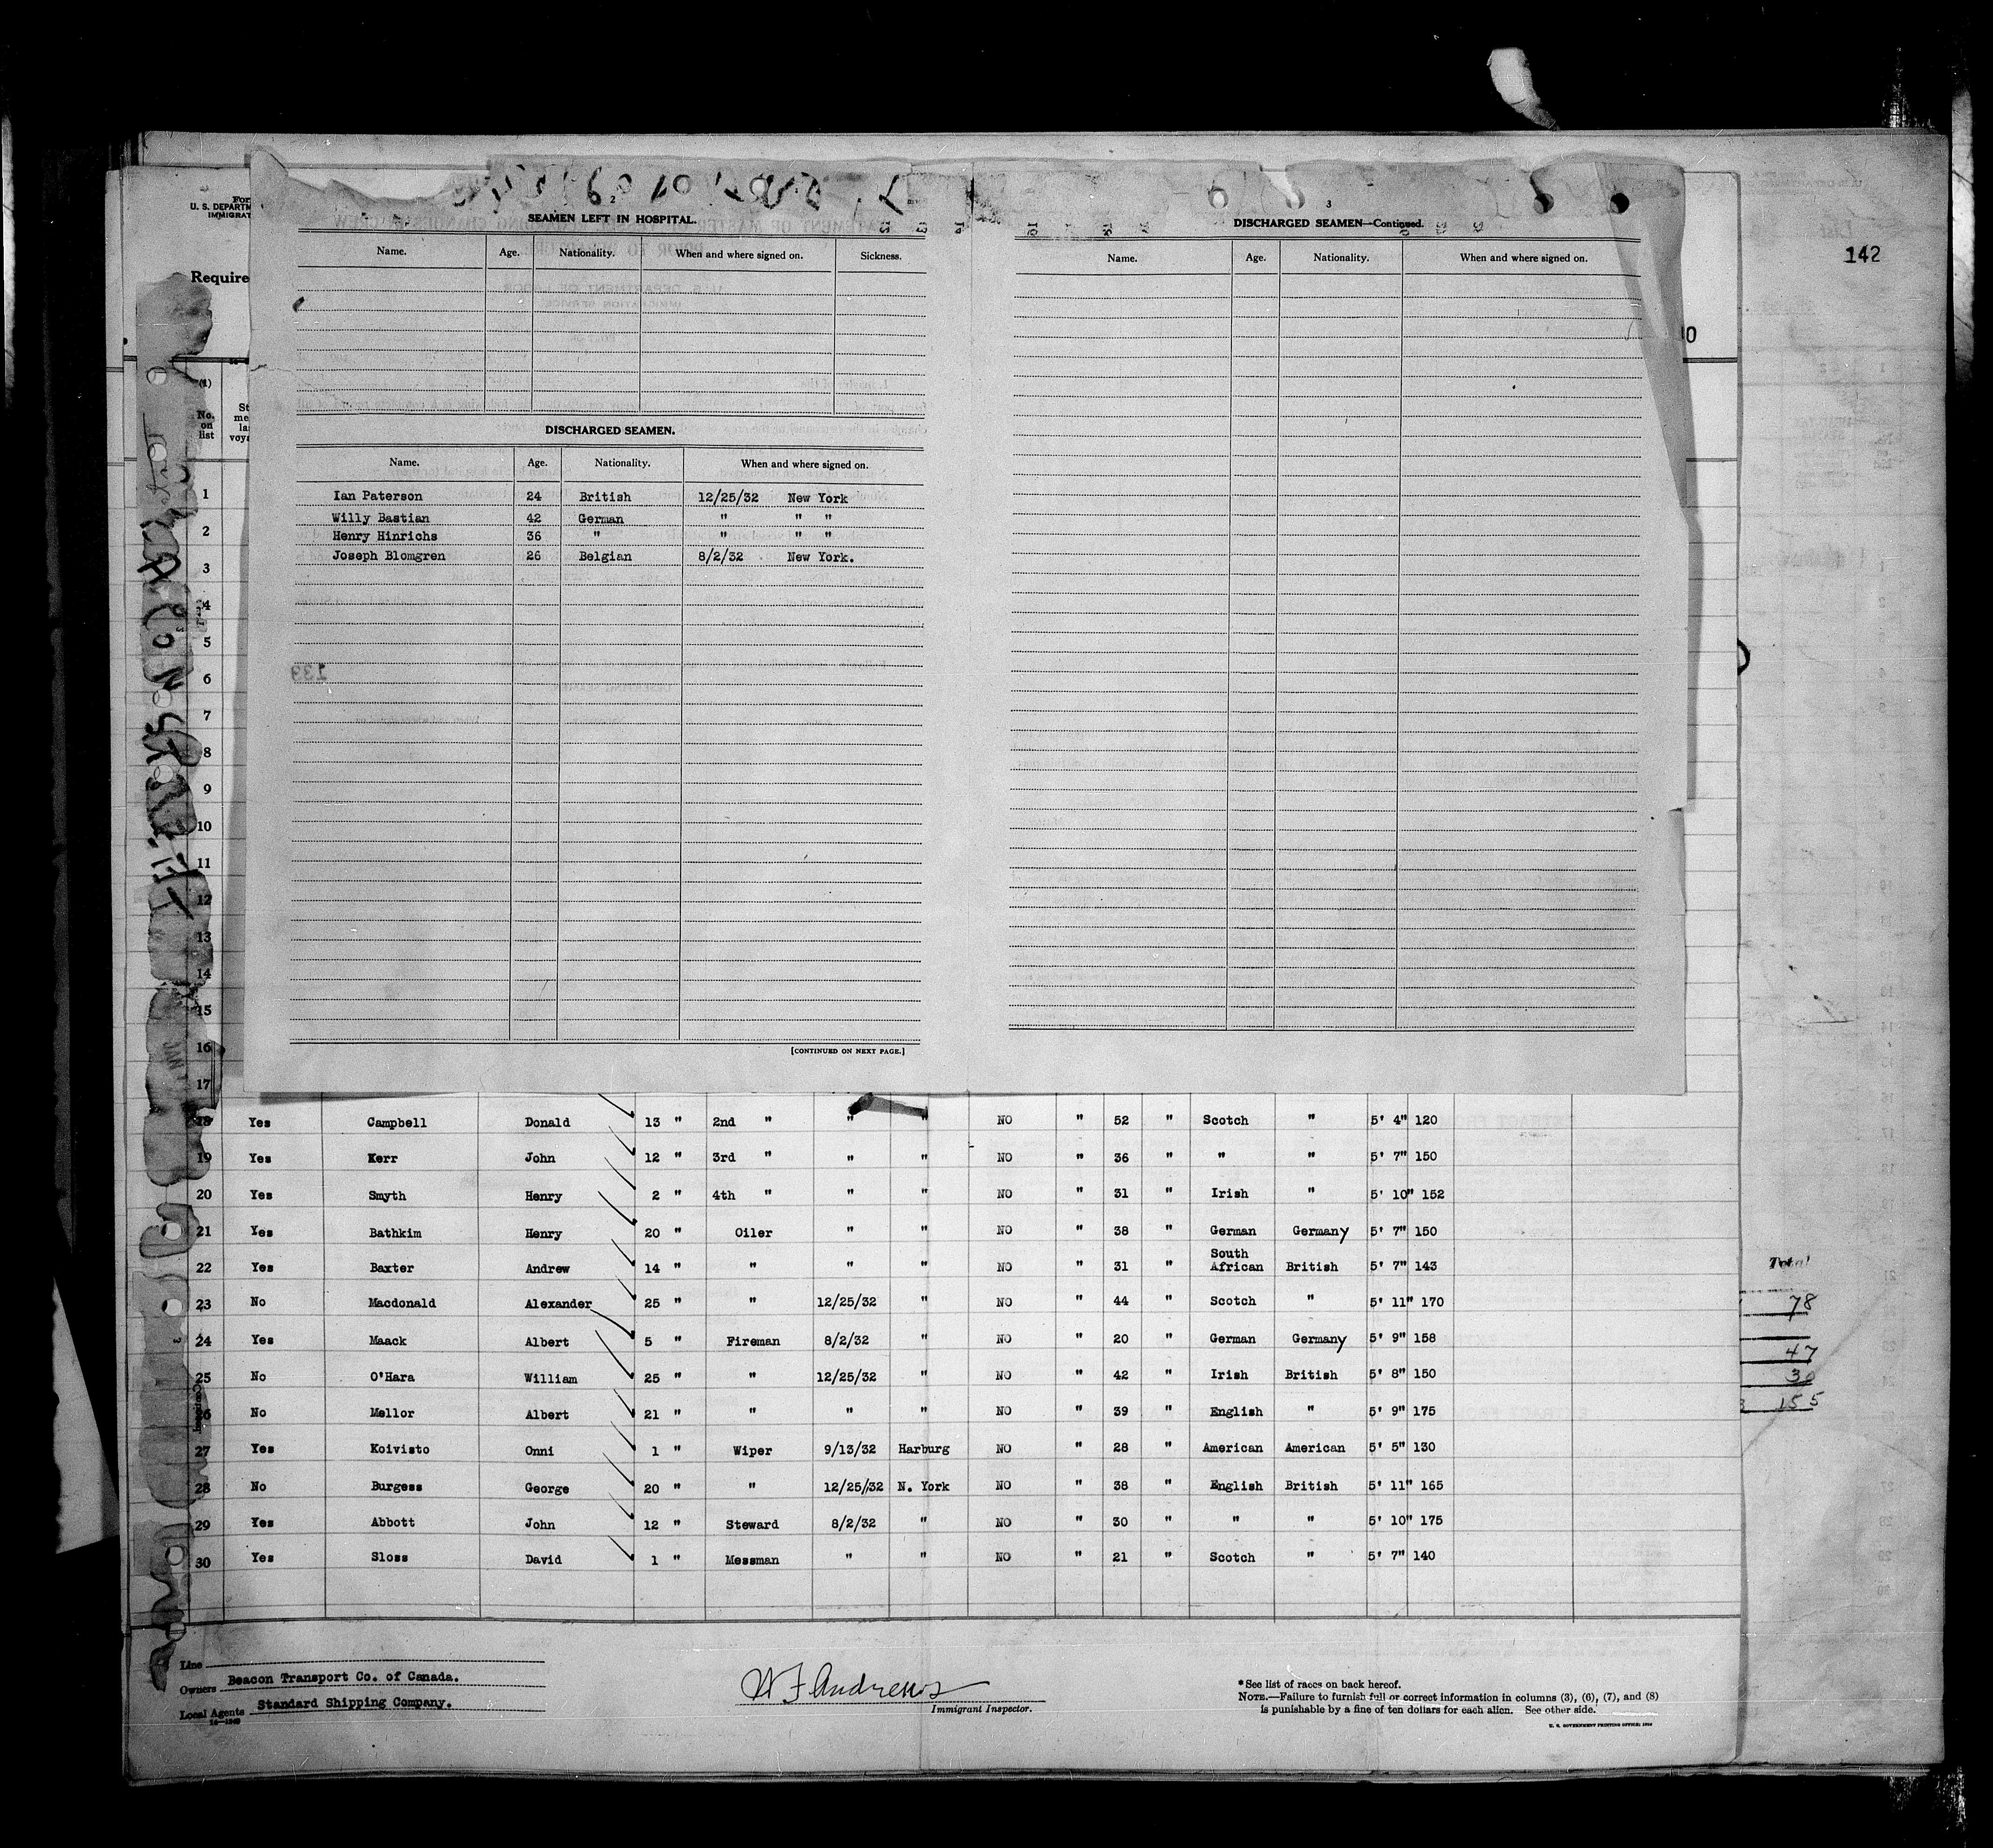 142
For
U. S. DEPARTM
IMMIGRAT
Require
2
SEAMEN LEFT IN HOSPITAL.
Name. Age. Nationality. When and where signed on. Sickness.
DISCHARGED SEAMEN.
Name. Age. Nationality. When and where signed on.
Ian Paterson 24 British 12/25/32 New York
Willy Bastian 42 German " " "
Henry Hinrichs 36 " " " "
Joseph Blomgren 26 Belgian 8/2/32 New York.
[CONTINUED ON NEXT PAGE.]
3
DISCHARGED SEAMEN—Continued.
Name. Age. Nationality. When and where signed on.
(1)
No. on list
1
2
3
4
5
6
7
8
9
10
11
12
13
14
15
16
17
18 Yes Campbell Donald 13 " 2nd " " " NO " 52 " Scotch " 5' 4" 120
19 Yes Kerr John 12 " 3rd " " " NO " 36 " " " 5' 7" 150
20 Yes Smyth Henry 2 " 4th " " " NO " 31 " Irish " 5' 10" 152
21 Yes Bathkim Henry 20 " Oiler " " NO " 38 " German Germany 5' 7" 150
22 Yes Baxter Andrew 14 " " " " NO " 31 " South African British 5' 7" 143
23 No Macdonald Alexander 25 " " 12/25/32 " NO " 44 " Scotch " 5' 11" 170
24 Yes Maack Albert 5 " Fireman 8/2/32 " NO " 20 " German Germany 5' 9" 158
25 No O'Hara William 25 " " 12/25/32 " NO " 42 " Irish British 5' 8" 150
26 No Mellor Albert 21 " " " " NO " 39 " English " 5' 9" 175
27 Yes Koivisto Onni 1 " Wiper 9/13/32 Harburg NO " 28 " American American 5' 5" 130
28 No Burgess George 20 " " 12/25/32 N. York NO " 38 " English British 5' 11" 165
29 Yes Abbott John 12 " Steward 8/2/32 " NO " 30 " " " 5' 10" 175
30 Yes Sloss David 1 " Messman " " NO " 21 " Scotch " 5' 7" 140
Total
78
47
30
155
Line
Owners Beacon Transport Co. of Canada.
Local Agents Standard Shipping Company.
W F Andrews
Immigrant Inspector.
* See list of races on back hereof.
NOTE.—Failure to furnish full or correct information in columns (3), (6), (7), and (8)
is punishable by a fine of ten dollars for each alien. See other side.
U. S. GOVERNMENT PRINTING OFFICE: